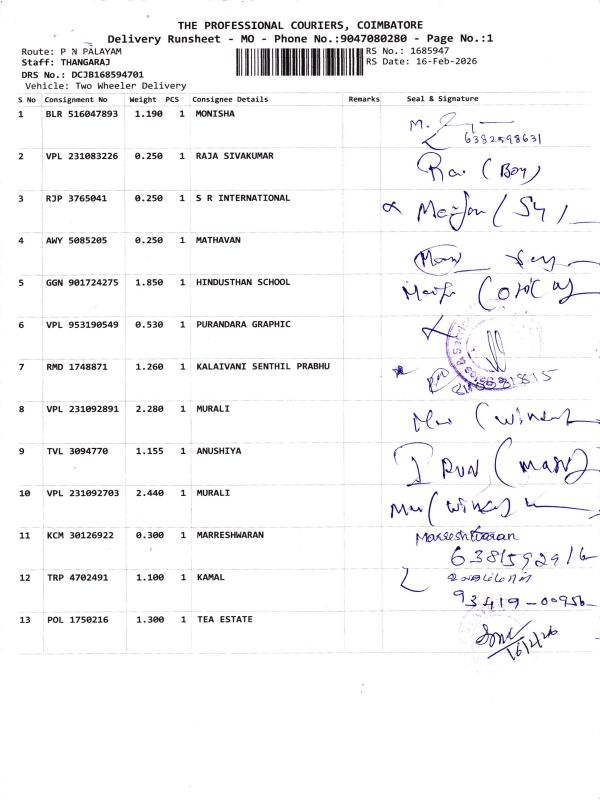 THE PROFESSIONAL COURIERS, COIMBATORE
Delivery Runsheet - MO - Phone No.:9047080280 - Page No.:1
Route: P N PALAYAM
RS No.: 1685947
Staff: THANGARAJ
RS Date: 16-Feb-2026
DRS No.: DCJB168594701
Vehicle: Two Wheeler Delivery
S No Consignment No Weight PCS Consignee Details Remarks Seal & Signature
1 BLR 516047893 1.190 1 MONISHA
M.
6382598631
2 VPL 231083226 0.250 1 RAJA SIVAKUMAR
(Boy)
3 RJP 3765041 0.250 1 S R INTERNATIONAL
4 AWY 5085205 0.250 1 MATHAVAN
5 GGN 901724275 1.850 1 HINDUSTHAN SCHOOL
6 VPL 953190549 0.530 1 PURANDARA GRAPHIC
7 RMD 1748871 1.260 1 KALAIVANI SENTHIL PRABHU
8 VPL 231092891 2.280 1 MURALI
9 TVL 3094770 1.155 1 ANUSHIYA
10 VPL 231092703 2.440 1 MURALI
11 KCM 30126922 0.300 1 MARRESHWARAN
Marreshwaran
12 TRP 4702491 1.100 1 KAMAL
93419-00956
13 POL 1750216 1.300 1 TEA ESTATE
16/2/26